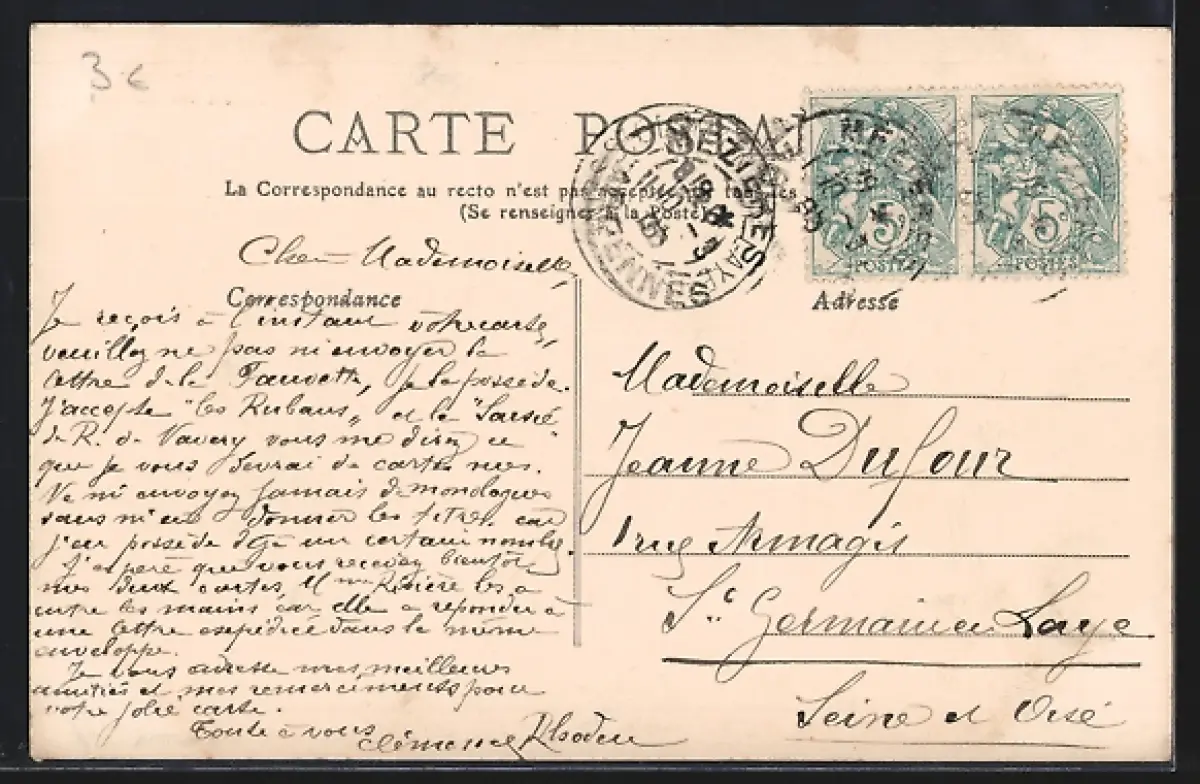 3 €
CARTE POSTALE
La Correspondance au recto n'est pas acceptée par tous les
(Se renseigner à la Poste)
MÉZIÈRES
ARDENNES
5
POSTES
5
POSTES
Chère Mademoiselle,
Correspondance
Adresse
Je reçois à l'instant votre carte,
veuillez ne pas m'envoyer la
lettre de la Fauvette, je la possède.
J'accepte "les Rubans" et la
de R. de Navery vous me direz ce
que je vous devrai de cartes nues.
Ne m'envoyez jamais de monologues
sans m'en donner les titres car
j'en possède déjà un certain nombre.
J'espère que vous recevrez bientôt
mes deux cartes, Mme Rivière les a
entre les mains car elle a répondu à
une lettre expédiée dans la même
enveloppe.
Je vous adresse mes meilleures
amitiés et mes remerciements pour
votre jolie carte.
Toute à vous
Clémence
Mademoiselle
Jeanne Dufour
1 rue Armagis
St Germain en Laye
Seine et Oise